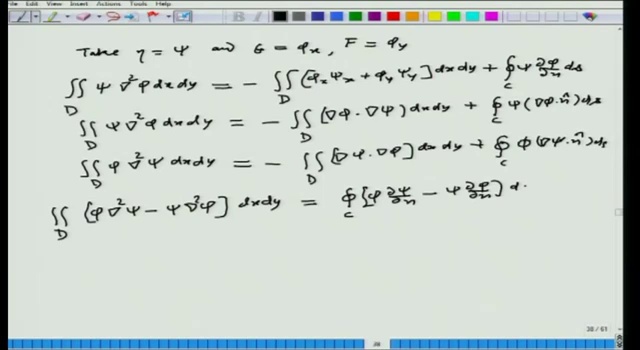 File Edit View Insert Actions Tools Help
Take η = ψ and G = φₓ, F = φᵧ
∬_D ψ ∇²φ dxdy = - ∬_D [φₓψₓ + φᵧψᵧ] dxdy + ∮_C ψ ∂φ/∂n ds
∬_D ψ ∇²φ dxdy = - ∬_D (∇φ · ∇ψ) dxdy + ∮_C ψ (∇φ · n̂) ds
∬_D φ ∇²ψ dxdy = - ∬_D [∇ψ · ∇φ] dxdy + ∮_C φ (∇ψ · n̂) ds
∬_D [φ∇²ψ - ψ∇²φ] dxdy = ∮_C [φ ∂ψ/∂n - ψ ∂φ/∂n] d
38 / 61
38